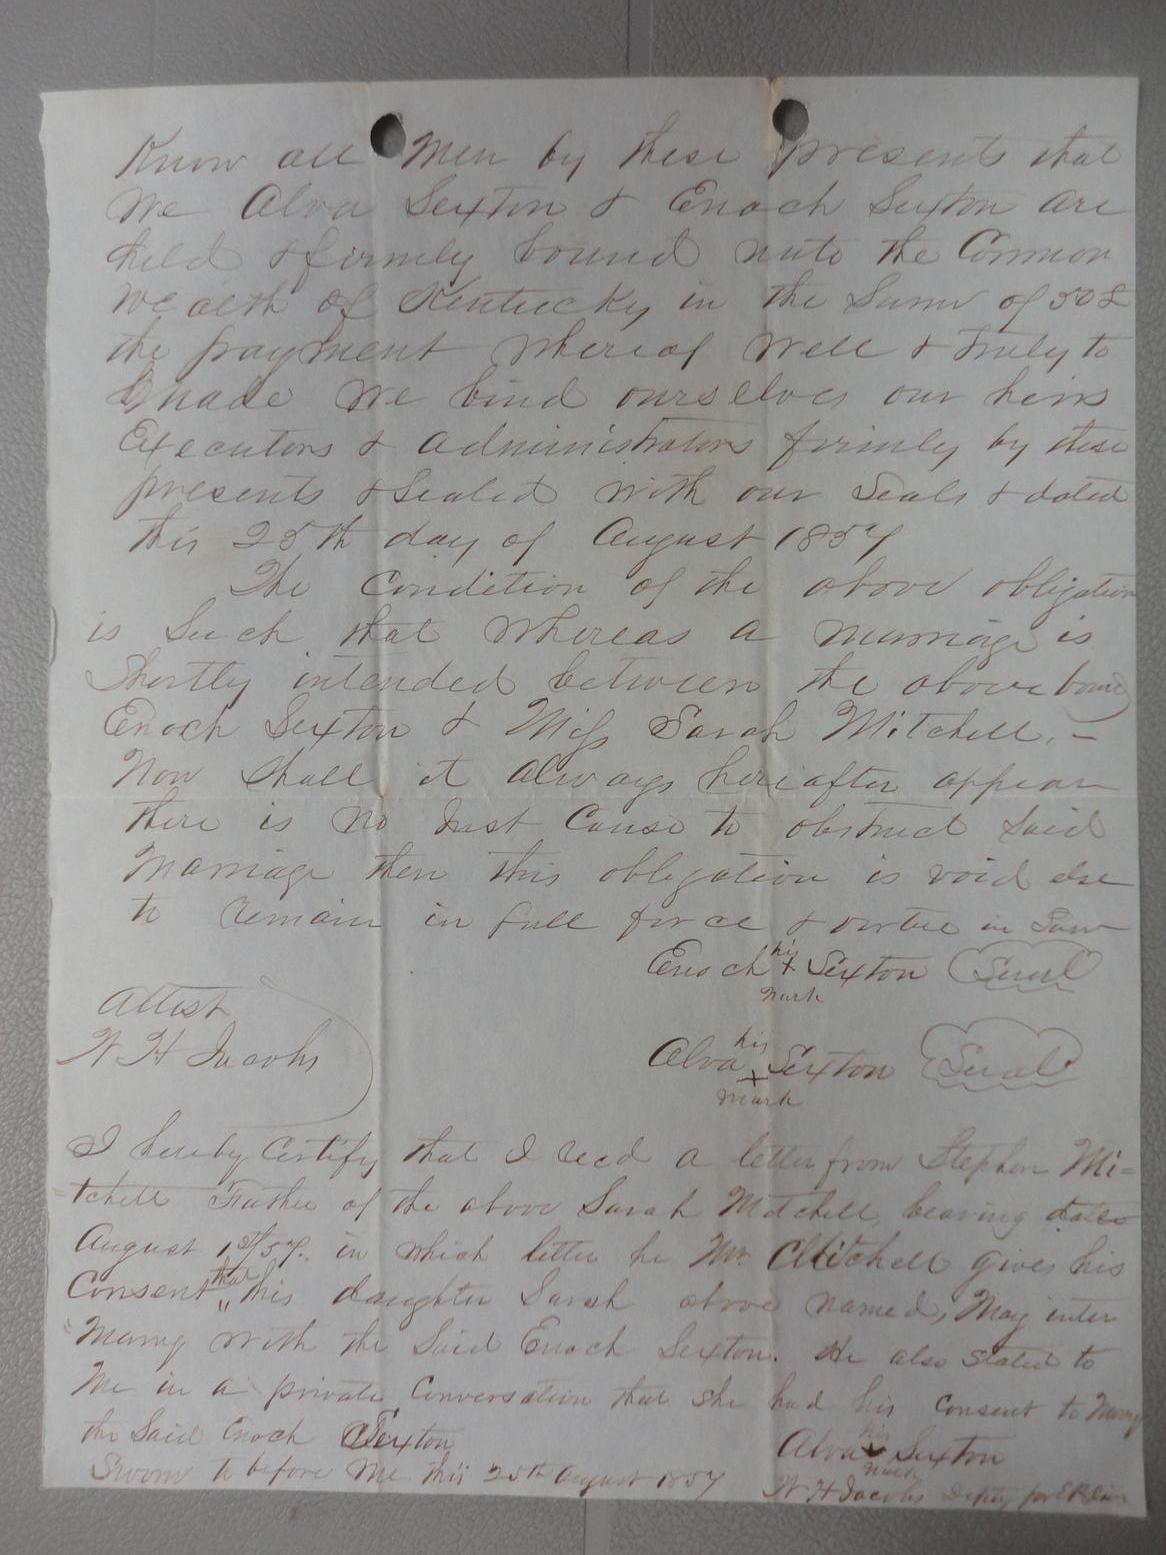 Know all Men by these presents that
We Alva Sexton & Enoch Sexton are
held & firmly bound unto the Common
Wealth of Kentucky in the Sum of 50£
the payment whereof Well & truly to
made We bind ourselves our heirs
Executors & administrators firmly by these
presents & Sealed with our Seals & dated
this 25th day of August 1857
The Condition of the above obligation
is Such that whereas a marriage is
Shortly intended between the above bound
Enoch Sexton & Miss Sarah Mitchell, –
Now Shall it always hereafter appear
there is no Just Cause to obstruct Said
Marriage then this obligation is void else
to remain in full force & virtue in Law
Enoch his + mark Sexton (Seal)
Attest
W H Jacobs
Alva his + mark Sexton (Seal)
I hereby Certify that I recd a letter from Stephen Mi=
tchell Father of the above Sarah Mitchell, bearing date
August 1st/57. in which letter he Mr. Mitchell gives his
Consent that his daughter Sarah above named, May inter
Marry with the Said Enoch Sexton. He also stated to
Me in a private Conversation that she had his consent to Marry
the Said Enoch Sexton
Alva his mark Sexton
Sworn to before Me this 25th August 1857
W H Jacobs Deputy for